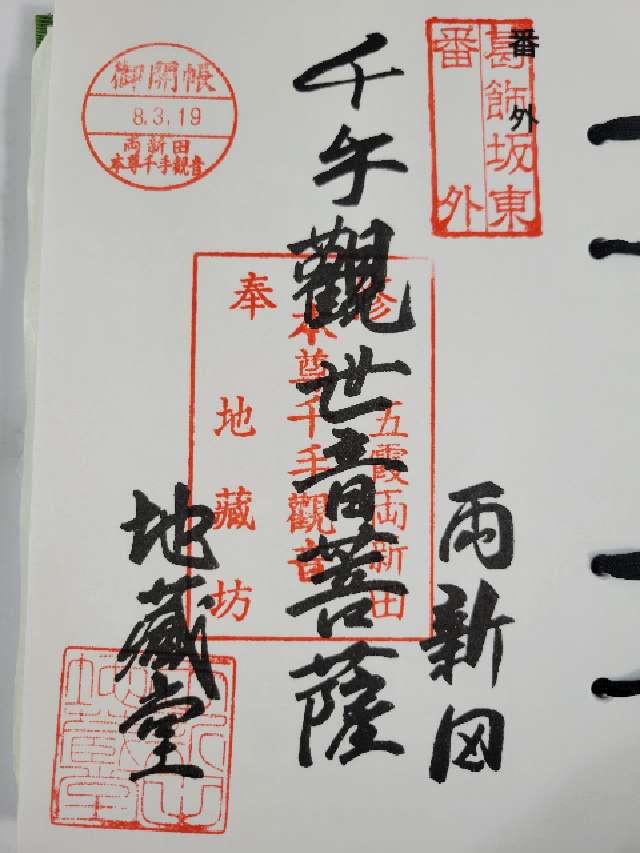 葛飾坂東
番外
番外
御開帳
8.3.19
両新田
本尊千手観音
千手觀世音菩薩
五霞両新田
本尊千手觀音
奉
地藏坊
両新田
地藏堂